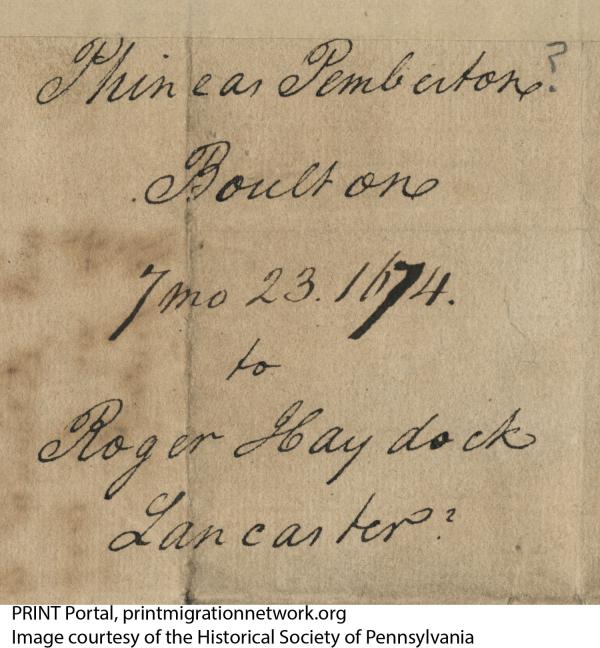 Phineas Pemberton?
Boulton
7 mo 23. 1674.
to
Roger Haydock
Lancaster?
PRINT Portal, printmigrationnetwork.org
Image courtesy of the Historical Society of Pennsylvania